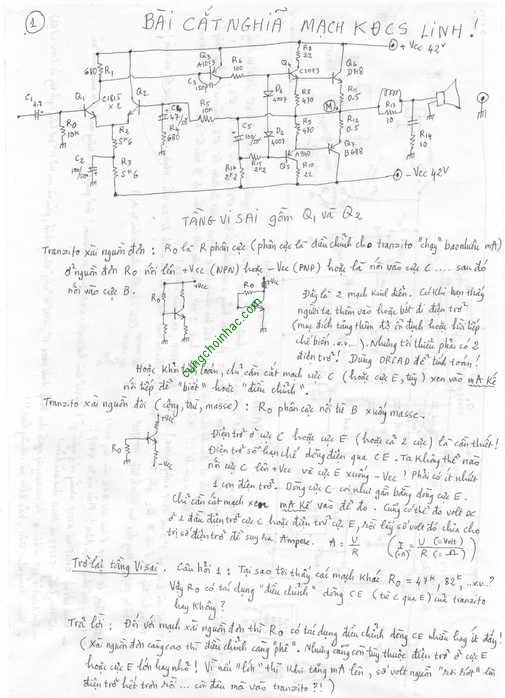 1 BÀI CẮT NGHĨA MẠCH KĐCS LINH!
+Vcc 42V
R1 680
Q3 A1013
R6 100
Q4 C1013
R8 22
Q6 D718
C3 150p
C1 4.7
Q1 C1815 x2
Q2
R0 10K
R2 5K6
C2 100/50
R3 5K6
C4 47/50
R4 680
R5 10K
C5
D1 4007
D2 4007
R7 470
R9 470
M
R11 0.5
R12 0.5
R13 10
R14 10
R16 2K2
R17 2K2
Q5 A940
R10 22
Q7 B688
-Vcc 42V
TẦNG VI SAI gồm Q1 và Q2
Tranzito xài nguồn đơn : R0 là R phân cực (phân cực là điều chỉnh cho tranzito "chạy" bao nhiêu mA)
Ở nguồn đơn R0 nối lên +Vcc (NPN) hoặc -Vcc (PNP) hoặc là nối vào cực C .... sau đó
nối vào cực B.
R0 +Vcc R0 +Vcc
Đây là 2 mạch kinh điển. Có khi bạn thấy
người ta thêm vào hoặc bớt đi điện trở
(mục đích tăng thêm độ ổn định hoặc hồi tiếp
.v.v...). Nhưng tối thiểu phải có 2
điện trở! Dùng ORCAD để tính toán!
cungchoinhac.com
Hoặc khỏi tính toán, chỉ cần cắt mạch cực C (hoặc cực E, tùy) xen vào mA Kế
nối tiếp để "biết" hoặc "điều chỉnh".
Tranzito xài nguồn đôi (cộng, trừ, masse) : R0 phân cực nối từ B xuống masse.
+Vcc
R0
-Vcc
Điện trở ở cực C hoặc cực E (hoặc cả 2 cực) là cần thiết!
Điện trở sẽ hạn chế dòng điện qua CE. Ta không thể nào
nối cực C lên +Vcc và cực E xuống -Vcc! Phải có ít nhất
1 con điện trở. Dòng cực C coi như gần bằng dòng cực E.
Chỉ cần cắt mạch xen mA Kế vào để đo. Cũng có thể đo volt DC
ở 2 đầu điện trở cực C hoặc điện trở cực E, rồi lấy số volt đó chia cho
trị số điện trở để suy ra Ampere. A = V/R (I (=A) = U (=Volt) / R (=Ω))
Trở lại tầng Vi sai. Câu hỏi 1 : Tại sao tôi thấy các mạch khác R0 = 47K, 82K, ..v.v..?
Vậy R0 có tác dụng "điều chỉnh" dòng CE (từ C qua E) của tranzito
hay không?
Trả lời : Đối với mạch xài nguồn đơn thì R0 có tác dụng điều chỉnh dòng CE nhiều hay ít đấy!
(Xài nguồn đơn càng cao thì điều chỉnh càng "phê". Nhưng cũng còn tùy thuộc điện trở ở cực E
hoặc cực E lớn hay nhỏ! Vì nếu "lớn" thì khi tăng mA lên, số volt nguồn lên
điện trở hết trơn rồi ... còn đâu mà vào tranzito?!)